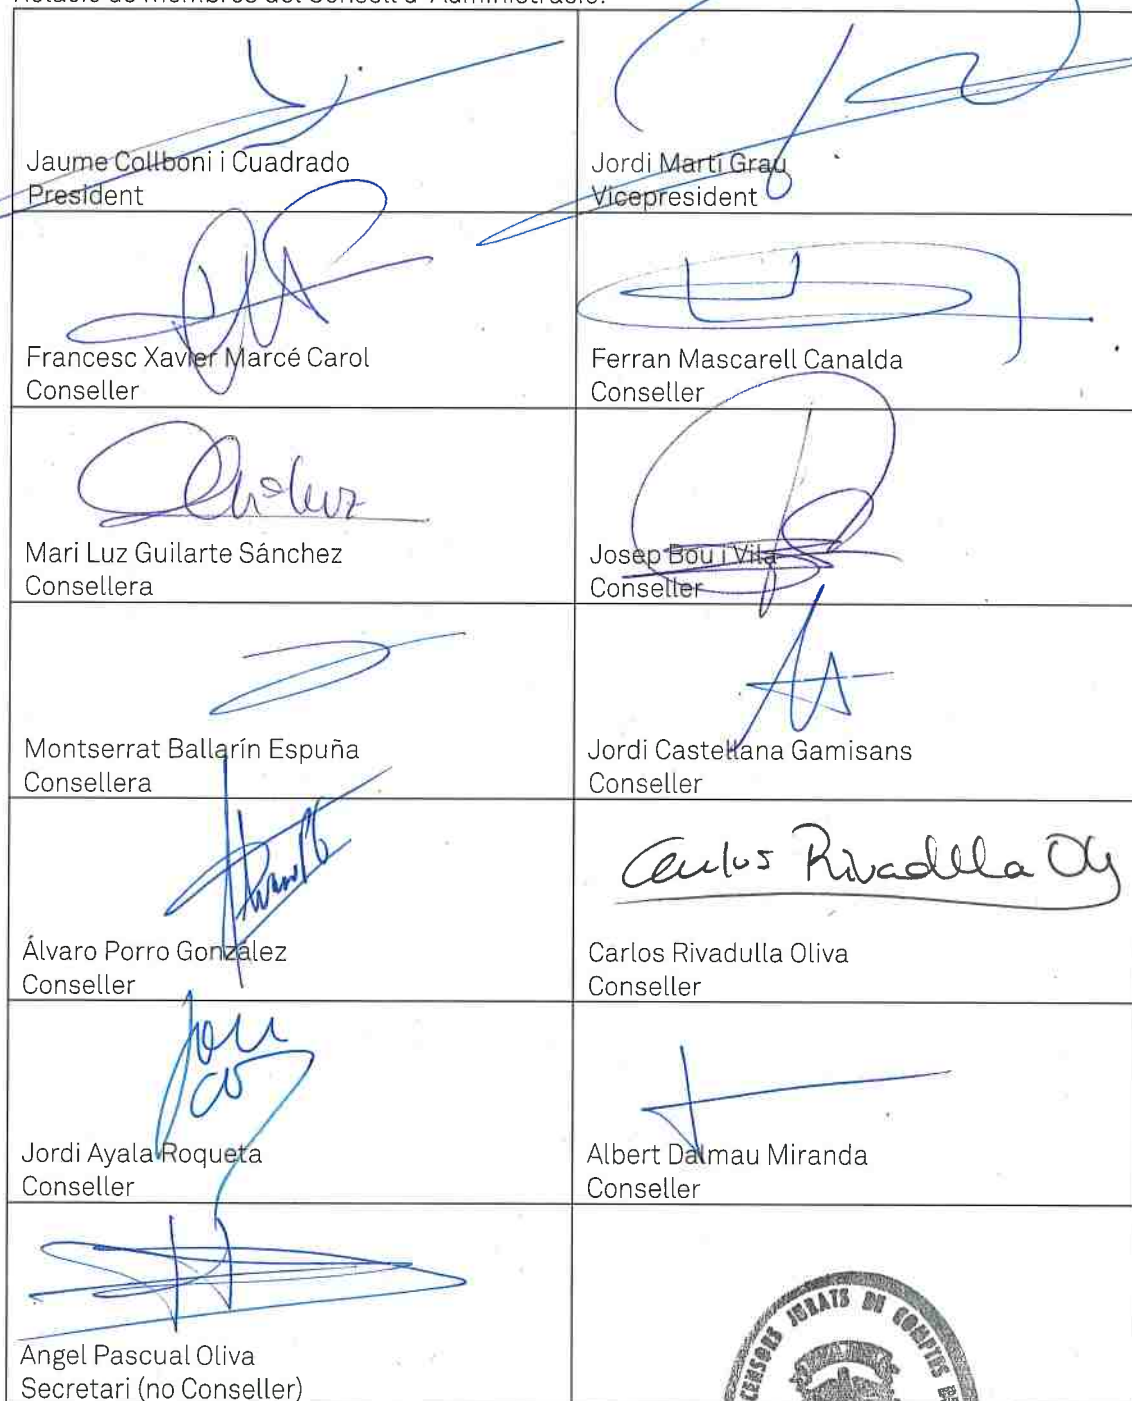 Relació de membres del Consell d'Administració:
Jaume Collboni i Cuadrado
President
Jordi Martí Grau
Vicepresident
Francesc Xavier Marcé Carol
Conseller
Ferran Mascarell Canalda
Conseller
Mari Luz Guilarte Sánchez
Consellera
Josep Bou i Vila
Conseller
Montserrat Ballarín Espuña
Consellera
Jordi Castellana Gamisans
Conseller
Álvaro Porro González
Conseller
Carlos Rivadulla
Carlos Rivadulla Oliva
Conseller
Jordi Ayala Roqueta
Conseller
Albert Dalmau Miranda
Conseller
Angel Pascual Oliva
Secretari (no Conseller)
CENSORS JURATS DE COMPTES